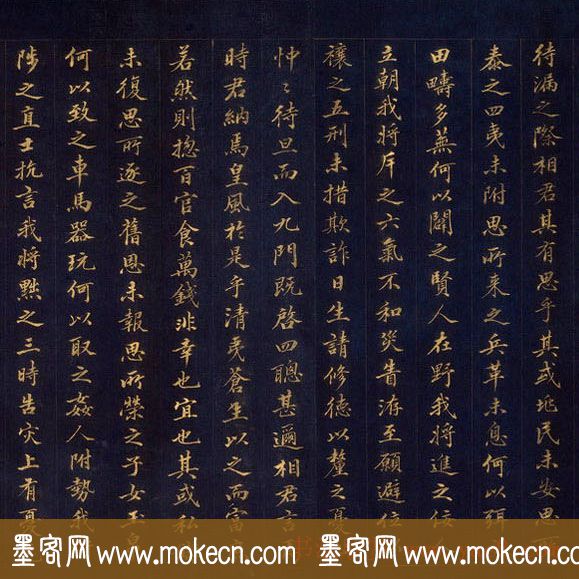 待漏之際相君其有思乎其或兆民未安思所
泰之四夷未附思所来之兵革未息何以弭
田疇多蕪何以闢之賢人在野我將進之佞
立朝我將斥之六氣不和災眚洊至願避位
禳之五刑未措欺詐日生請修德以釐之憂
忡〻待旦而入九門既啓四聰甚邇相君言
時君納焉皇風於是乎清夷蒼生以之而富
若然則揔百官食萬錢非幸也宜也其或私
未復思所逐之舊恩未報思所榮之子女玉帛
何以致之車馬器玩何以取之姦人附勢我
陟之直士抗言我將黜之三時告灾上有憂
墨客网 www.mokecn.com 墨客网 www.mokecn.com